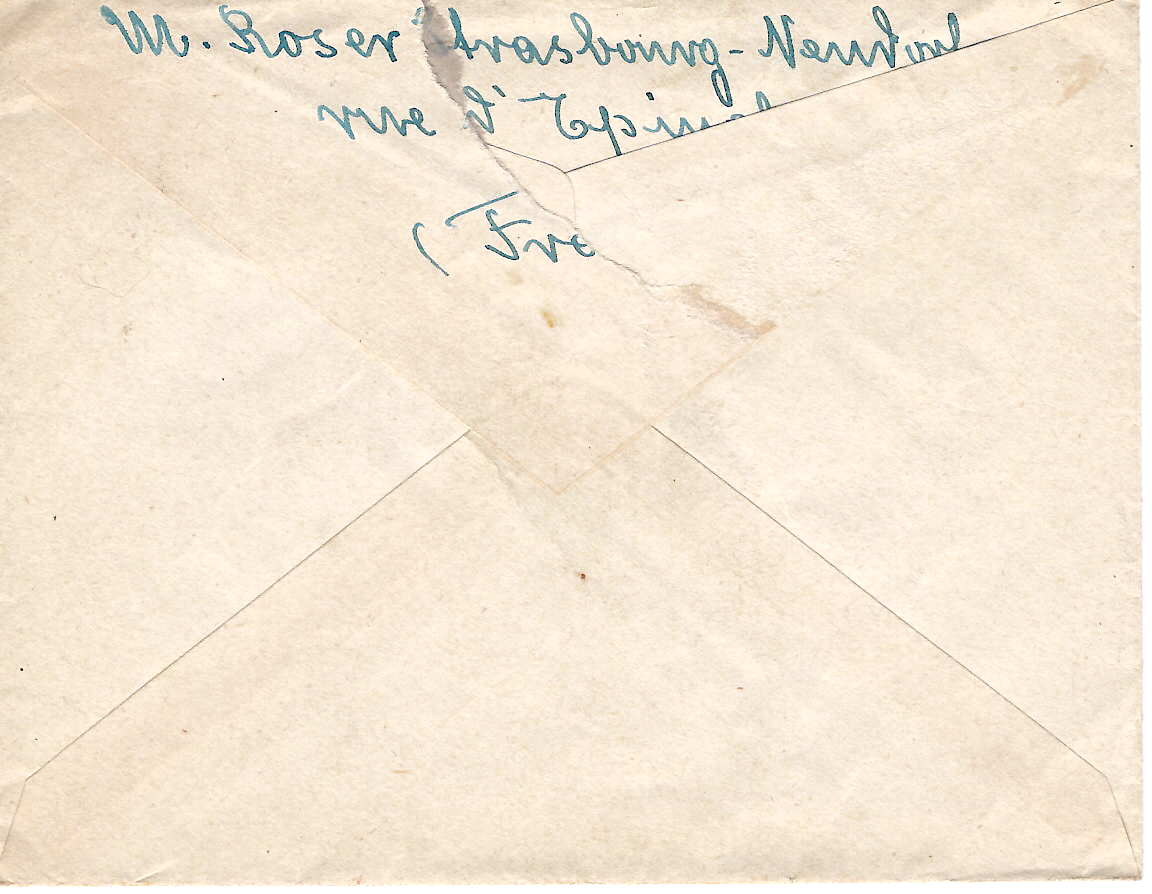 M. Roser Strasbourg-Neudorf
rue d'Epinal
(Fra